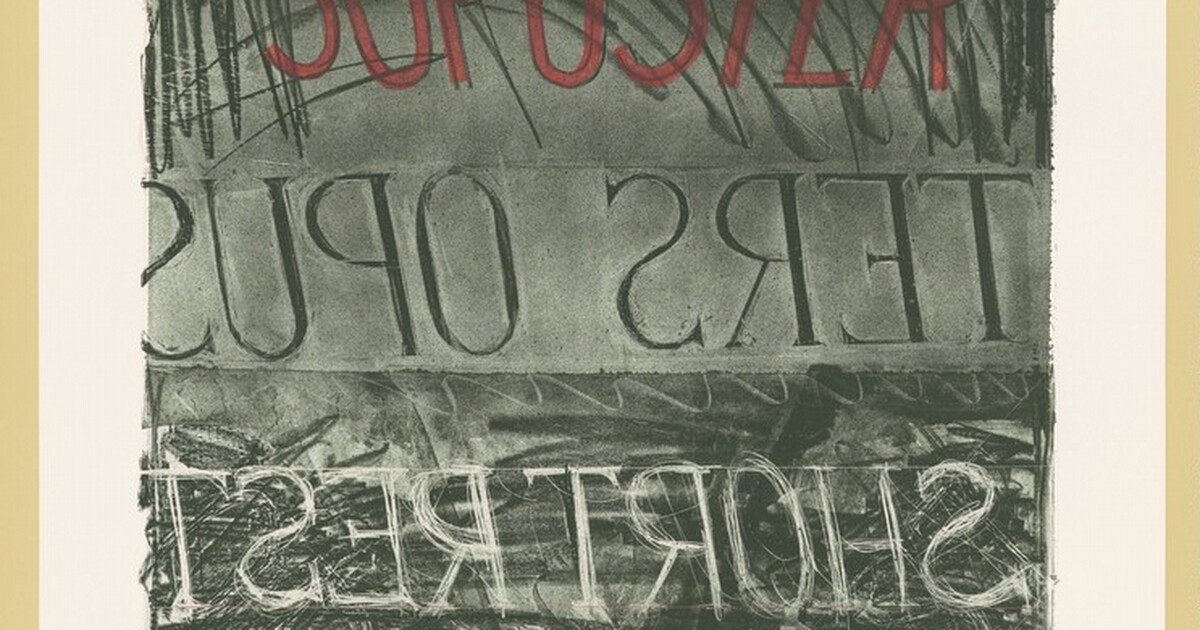 TERS OPUS
SHORT REST